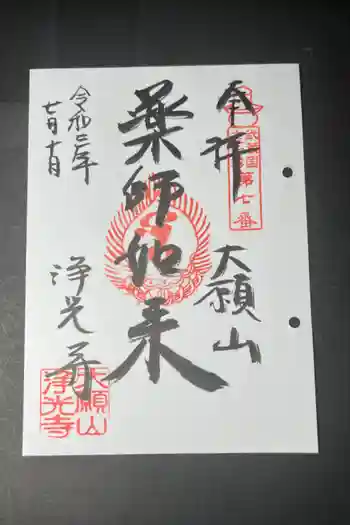 奉拝
大願山
第七番
薬師如来
浄光寺
令和二年
七月十日
大願山
浄光寺